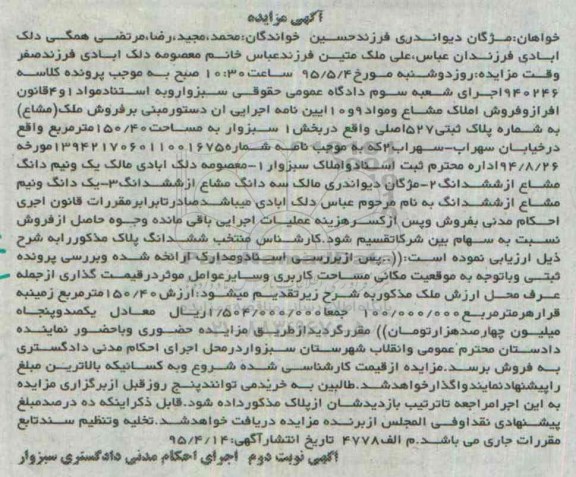 آگهی مزایده
خواهان:مژگان دیواندری فرزندحسین خواندگان:محمد،مجید،رضا،مرتضی همگی دلک
ابادی فرزندان عباس،علی ملک متین فرزندعباس خانم معصومه دلک ابادی فرزندصفر
وقت مزایده:روزدوشنبه مورخ۹۵/۵/۴ ساعت۱۰:۳۰ صبح به موجب پرونده کلاسه
۹۴۰۲۴۶اجرای شعبه سوم دادگاه عمومی حقوقی سبزواروبه استنادمواد۱و۴قانون
افرازوفروش املاک مشاع ومواد۹و۱۰ایین نامه اجرایی ان دستورمبنی برفروش ملک(مشاع)
به شماره پلاک ثبتی۵۲۷اصلی واقع دربخش۱ سبزوار به مساحت۱۵۰/۴۰مترمربع واقع
درخیابان سهراب-سهراب۲که به موجب نامه شماره۱۳۹۴۲۱۷۰۶۰۱۱۰۰۱۶۷۵مورخه
۹۴/۸/۲۶اداره محترم ثبت اسنادواملاک سبزوار۱-معصومه دلک ابادی مالک یک ونیم دانگ
مشاع ازششدانگ۲-مژگان دیواندری مالک سه دانگ مشاع ازششدانگ۳-یک دانگ ونیم
مشاع ازششدانگ به نام مرحوم عباس دلک ابادی میباشدصادرتابرابرمقررات قانون اجری
احکام مدنی بفروش وپس ازکسرهزینه عملیات اجرایی باقی مانده وجوه حاصل ازفروش
نسبت به سهام بین شرکاتقسیم شود.کارشناس منتخب ششدانگ پلاک مذکوررابه شرح
ذیل ارزیابی نموده است:((..پس ازبررسی اسنادومدارک ارائخه شده وبررسی پرونده
ثبتی وباتوجه به موقعیت مکانی مساحت کاربری وسایرعوامل موثردرقیمت گذاری ازجمله
عرف محل ارزش ملک مذکوربه شرح زیرتقدیم میشود:ارزش۱۵۰/۴۰مترمربع زمینبه
قرارهرمترمربع۱۰۰/۰۰۰/۰۰۰ جمعا۱/۵۰۴/۰۰۰/۰۰۰اریال معادل یکصدوپنجاه
میلیون چهارصدهزارتومان)) مقررگردیدازطریق مزایده حضوری وباحضور نماینده
دادستان محترم عمومی وانقلاب شهرستان سبزواردرمحل اجرای احکام مدنی دادگستری
به فروش برسد.مزایده ازقیمت کارشناسی شده شروع وبه کسانیکه بالاترین مبلغ
راپیشنهادنمایندواگذارخواهدشد.طالبین به خریدمی توانندپنج روزقبل ازبرگزاری مزایده
به این اجرامراجعه تاترتیب بازدیدشان ازپلاک مذکورداده شود.قابل ذکراینکه ده درصدمبلغ
پیشنهادی نقداوفی المجلس ازبرنده مزایده دریافت خواهدشد.تخلیه وتنظیم سندتابع
مقررات جاری می باشد.م الف۴۷۷۸ تاریخ انتشارآگهی:۹۵/۴/۱۴
آگهی نوبت دوم اجرای احکام مدنی دادگستری سبزوار